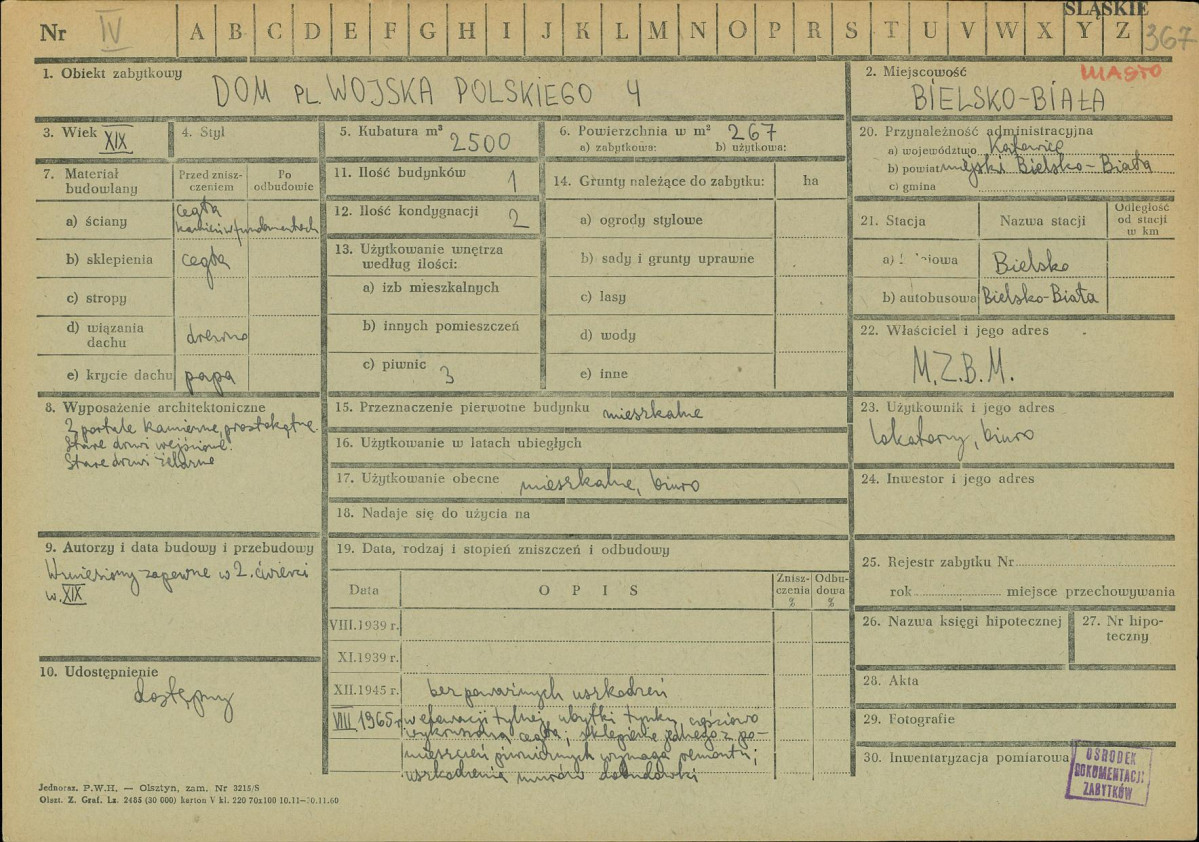 ŚLĄSKIE
Nr IV A B C D E F G H I J K L M N O P R S T U V W X Y Z 367
1. Obiekt zabytkowy DOM PL. WOJSKA POLSKIEGO 4
2. Miejscowość MIASTO
BIELSKO-BIAŁA
3. Wiek XIX
4. Styl
5. Kubatura m³ 2500
6. Powierzchnia w m² 267
a) zabytkowa: b) użytkowa:
20. Przynależność administracyjna
a) województwo Katowice
b) powiat miejski Bielsko-Biała
c) gmina
7. Materiał budowlany
Przed zniszczeniem
Po odbudowie
a) ściany cegła
kamień w fundamentach
b) sklepienia cegła
c) stropy
d) wiązania dachu drewno
e) krycie dachu papa
11. Ilość budynków 1
12. Ilość kondygnacji 2
13. Użytkowanie wnętrza
według ilości:
a) izb mieszkalnych
b) innych pomieszczeń
c) piwnic 3
14. Grunty należące do zabytku: ha
a) ogrody stylowe
b) sady i grunty uprawne
c) lasy
d) wody
e) inne
21. Stacja Nazwa stacji Odległość od stacji w km
a) Bielsko
b) autobusowa Bielsko-Biała
22. Właściciel i jego adres
M.Z.B.M.
8. Wyposażenie architektoniczne
2 portale kamienne, prostokątne.
Stare drzwi wejściowe.
Stare drzwi żelazne
15. Przeznaczenie pierwotne budynku mieszkalne
16. Użytkowanie w latach ubiegłych
17. Użytkowanie obecne mieszkalne, biuro
18. Nadaje się do użycia na
23. Użytkownik i jego adres
lokatorzy, biuro
24. Inwestor i jego adres
9. Autorzy i data budowy i przebudowy
Wzniesiony zapewne w 2. ćwierci
w. XIX
19. Data, rodzaj i stopień zniszczeń i odbudowy
Data OPIS Zniszczenia % Odbudowa %
VIII.1939 r.
XI.1939 r.
XII.1945 r. bez poważnych uszkodzeń
VIII 1965 r w elewacji tylnej ubytki tynku, częściowo
wykruszona cegła; sklepienie jednego z po-
mieszczeń piwnicznych wymaga remontu;
uszkodzenia murów dobudówki
25. Rejestr zabytku Nr
rok miejsce przechowywania
26. Nazwa księgi hipotecznej
27. Nr hipoteczny
28. Akta
29. Fotografie
30. Inwentaryzacja pomiarowa
10. Udostępnienie
dostępny
OŚRODEK
DOKUMENTACJI
ZABYTKÓW
Jednoraz. P.W.H. — Olsztyn, zam. Nr 3215/S
Olszt. Z. Graf. Lz. 2465 (30 000) karton V kl. 220 70x100 10.11—10.11.60